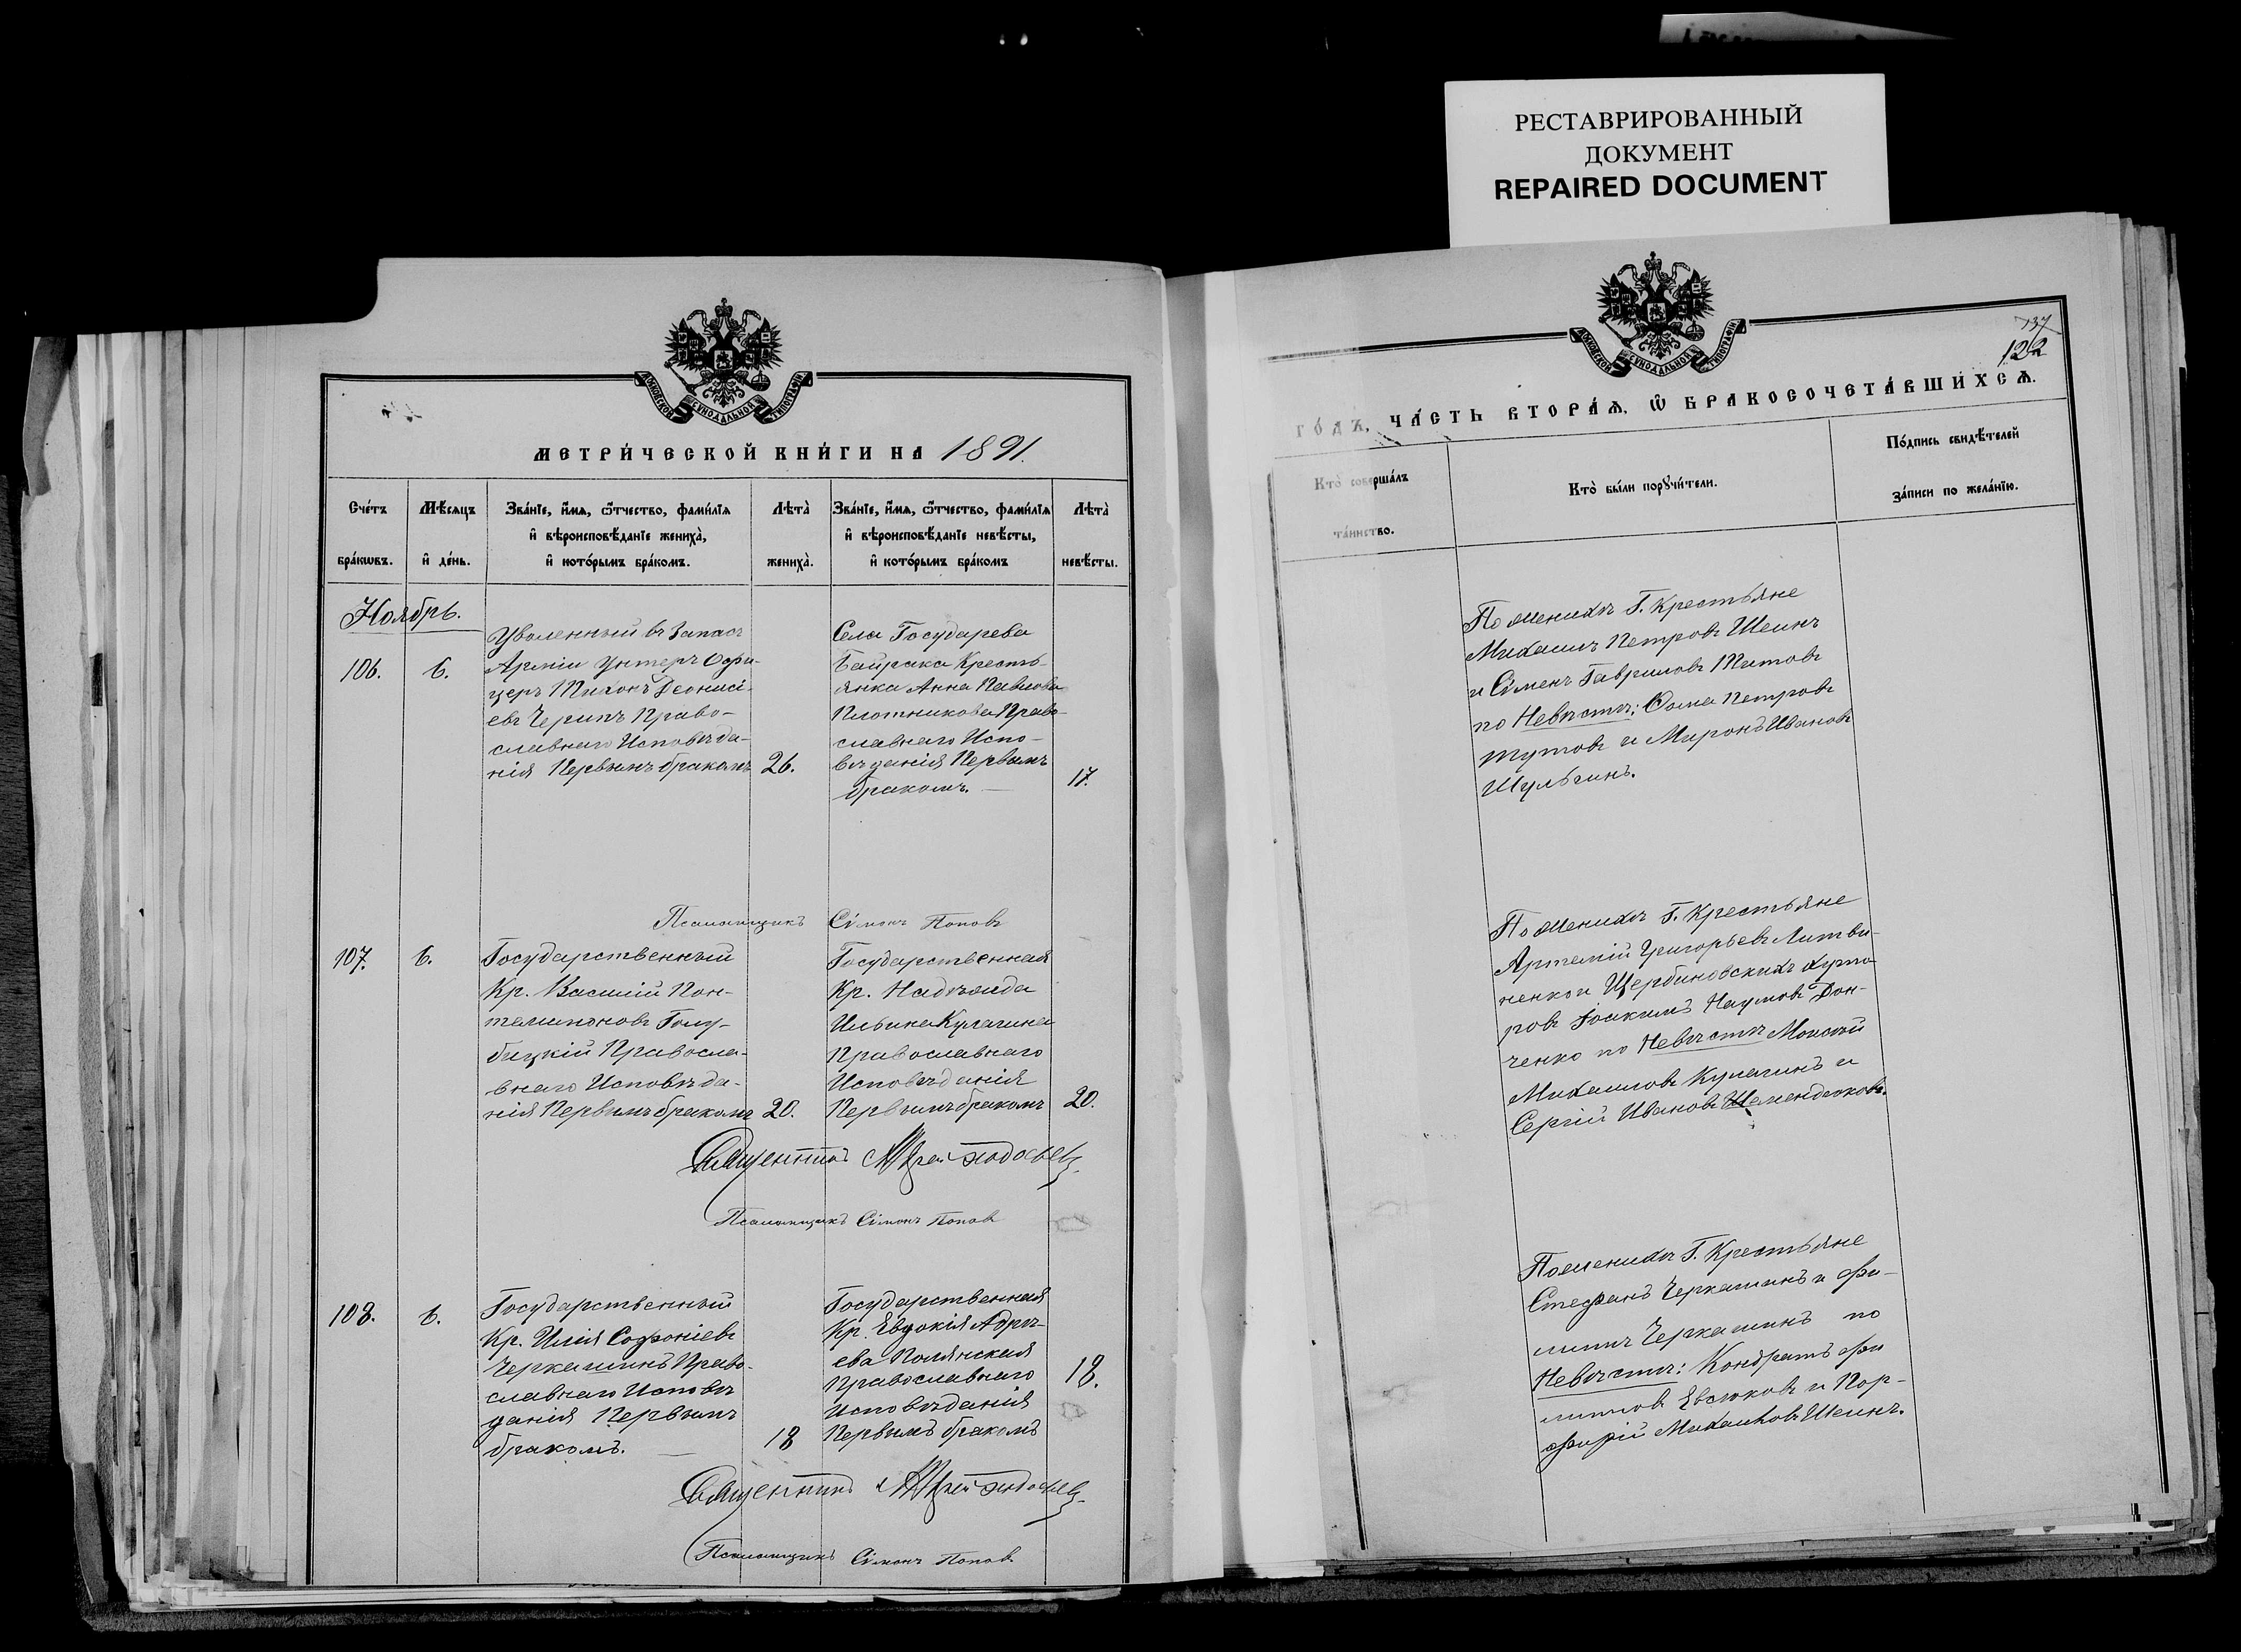 РЕСТАВРИРОВАННЫЙ
ДОКУМЕНТ
REPAIRED DOCUMENT
МОСКОВСКОЙ СѴНОДАЛЬНОЙ ТИПОГРАФІИ
МЕТРИ́ЧЕСКОЙ КНИ́ГИ НА 1891.
Сче́тъ
бра́кѡвъ.
Мѣ́сяцъ
и҆ де́нь.
Зва́нїе, и҆́мѧ, ѻ҆́тчество, фами́лїѧ
и҆ вѣроисповѣ́данїе жениха̀,
и҆ кото́рымъ бра́комъ.
Лѣ́та̀
жениха̀.
Зва́нїе, и҆́мѧ, ѻ҆́тчество, фами́лїѧ
и҆ вѣроисповѣ́данїе невѣ́сты,
и҆ кото́рымъ бра́комъ
Лѣ́та̀
невѣ́сты.
Ноябрь.
106.
6.
Уволенный въ Запасъ
Арміи Унтеръ Офи-
церъ Тихонъ Деонисі-
евъ Черипъ Право-
славнаго Исповѣда-
нія Первымъ бракомъ
26.
Села Государева
Байрака Кресть-
янка Анна Павлова
Плотникова Право-
славнаго Испо-
вѣданія Первымъ
бракомъ.
17.
Псаломщикъ Сімонъ Поповъ
107.
6.
Государственный
Кр. Василій Пан-
телимоновъ Голу-
бицкій Правосла-
внаго Исповѣда-
нія Первымъ бракомъ
20.
Государственная
Кр. Надѣжда
Ильина Кулагина
Православнаго
Исповѣданія
Первымъ бракомъ
20.
Священникъ
Псаломщикъ Сімонъ Поповъ
108.
6.
Государственный
Кр. Илія Софроніевъ
Черкашинъ Право-
славнаго Исповѣ
данія Первымъ
бракомъ.
18
Государственная
Кр. Евдокія Андрѣ-
ева Полянская
Православнаго
Исповѣданія
Первымъ бракомъ
18.
Священникъ
Псаломщикъ Сімонъ Поповъ
МОСКОВСКОЙ СѴНОДАЛЬНОЙ ТИПОГРАФІИ
137
122
ГО́ДЪ, ЧА́СТЬ ВТОРА́Ѧ, Ѽ БРАКОСОЧЕТА́ВШИХСѦ.
Кто̀ соверша́лъ
та́инство.
Кто̀ бы́ли порꙋчи́тели.
По́дпись свидѣ́телей
за́писи по жела́нїю.
По Женихѣ Г. Крестьяне
Михаилъ Петровъ Шеинъ
и Сіменъ Гавриловъ Титовъ
по Невѣстѣ: Ѳома Петровъ
Тутовъ и Миронъ Ивановъ
Шульгинъ.
По Женихѣ Г. Крестьяне
Артемій Григорьевъ Литви-
ненко и Щербиновскихъ хуто-
ровъ Іоакимъ Наумовъ Дон-
ченко по Невѣстѣ Моисей
Михаиловъ Кулагинъ и
Сергій Ивановъ Шемендюковъ.
По Женихѣ Г. Крестьяне
Стефанъ Черкашинъ и Фи-
липпъ Черкашинъ по
Невѣстѣ: Кондратъ Фи
липповъ Евсюковъ и Пор-
фирій Михаиловъ Шеинъ.